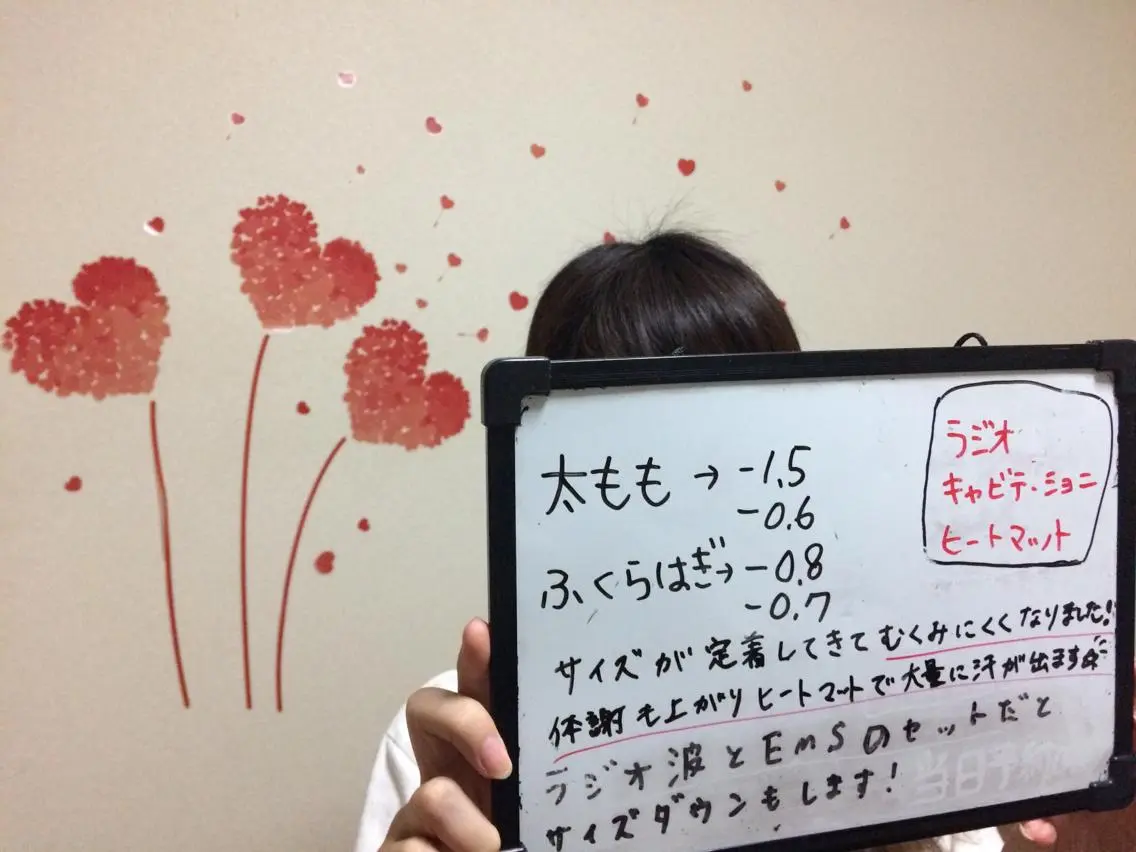 太もも→-1.5
-0.6
ふくらはぎ→-0.8
-0.7
ラジオ
キャビテ・ショニ
ヒートマット
サイズが定着してきてむくみにくくなりました!
体謝も上がりヒートマットで大量に汗が出ます☆
ラジオ波とEmSのセットだと
サイズダウンもします!
当日予約